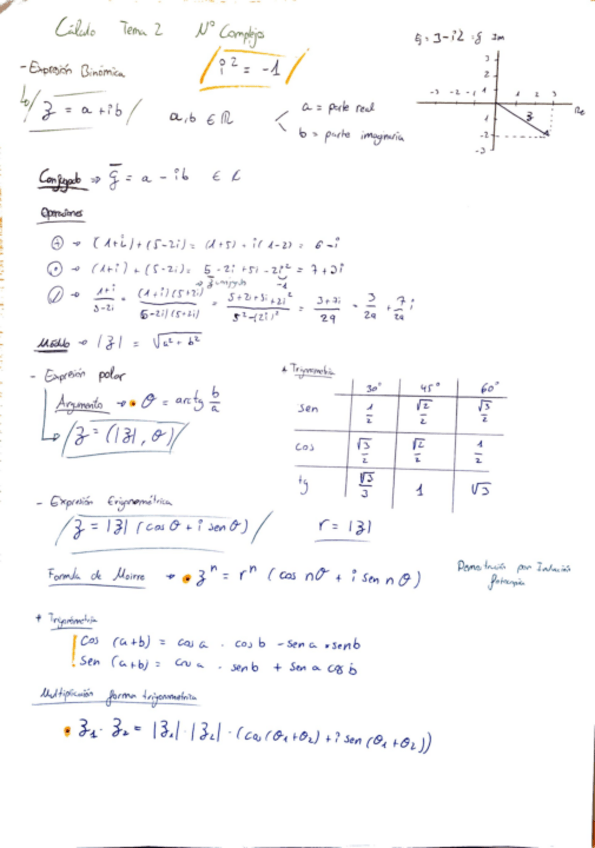 Cálculo Tema 2 Nº Complejos
z = 3-i2 = z Im
- Expresión Binómica
i² = -1
z = a + ib
a, b ∈ ℝ
a = parte real
b = parte imaginaria
3
2
1
-3 -2 -1 1 2 3 Re
-1
-2
-3
3
Conjugado ⇒ z̄ = a - ib ∈ ℂ
Operaciones
⊕ → (1+i) + (5-2i) = (1+5) - i(1-2) = 6-i
⊙ → (1+i) + (5-2i) = 5 - 2i + 5i - 2i² = 7+3i
-1
1+i / 5-2i = (1+i)(5+2i) / (5-2i)(5+2i) = 5+2i+5i+2i² / 5²-(2i)² = 3+7i / 29 = 3/29 + 7/29 i
Módulo → |z| = √a² + b²
- Expresión polar
Argumento → θ = arctg b/a
z = (|z|, θ)
* Trigonometría
30° 45° 60°
sen 1/2 √2/2 √3/2
cos √3/2 √2/2 1/2
tg √3/3 1 √3
- Expresión trigonométrica
z = |z| (cos θ + i sen θ)
r = |z|
Formula de Moivre → zⁿ = rⁿ (cos nθ + i sen nθ)
Demostración por Inducción
* Trigonometría
Cos (a+b) = cos a . cos b - sen a * sen b
Sen (a+b) = cos a . sen b + sen a cos b
Multiplicación forma trigonometrica
z₁ . z₂ = |z₁| . |z₂| . (cos (θ₁+θ₂) + i sen (θ₁+θ₂))